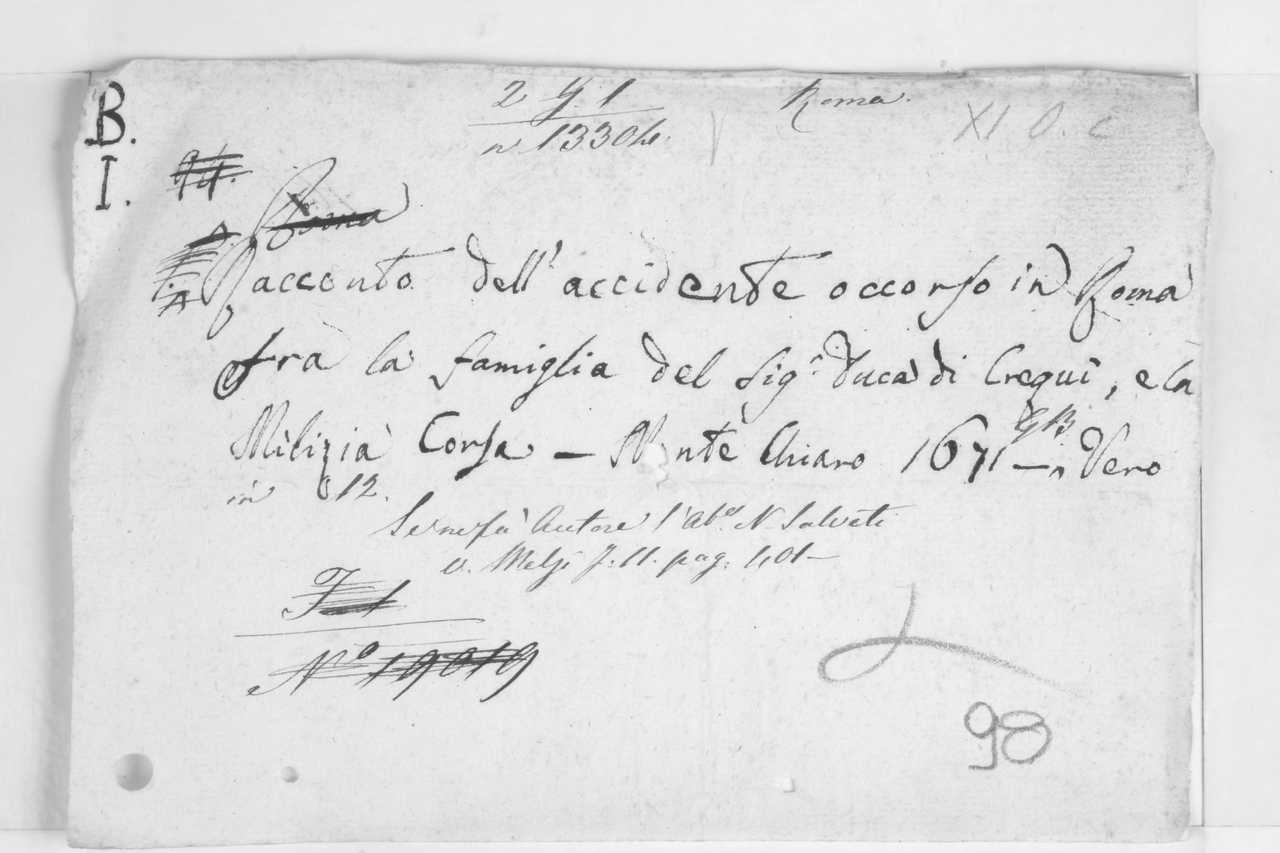 B. 2 Y. 1 Roma. XI O. c
I. n 13304.
94.
Roma
Racconto dell'accidente occorso in Roma
fra la famiglia del Sig.r Duca di Crequi, e la
Milizia Corsa – Monte Chiaro 1671 – Vero
in 12.
Se ne fa Autore l'Ab.e N. Salveti
v. Melzi T. II. pag. 401–
T 1
N.o 19019
98